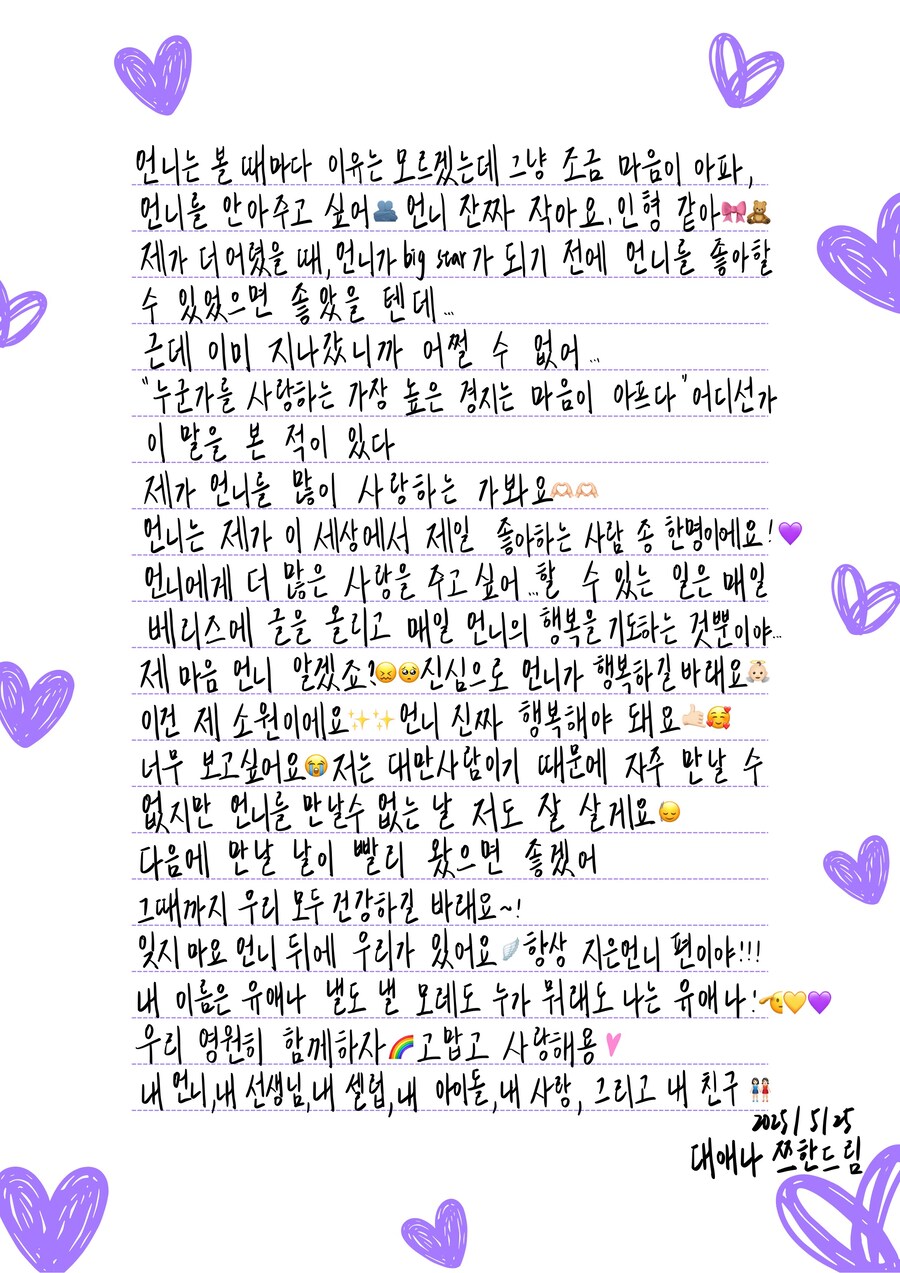 언니는 볼 때마다 이유는 모르겠는데 그냥 조금 마음이 아파,
언니를 안아주고 싶어🫂 언니 잔짜 작아요. 인형 같아🎀🧸
제가 더 어렸을 때, 언니가 big star가 되기 전에 언니를 좋아할
수 있었으면 좋았을 텐데...
근데 이미 지나갔니까 어쩔 수 없어...
"누군가를 사랑하는 가장 높은 경지는 마음이 아프다" 어디선가
이 말을 본 적이 있다
제가 언니를 많이 사랑하는 가봐요🫶🏻🫶🏻
언니는 제가 이 세상에서 제일 좋아하는 사람 중 한명이에요!💜
언니에게 더 많은 사랑을 주고 싶어...할 수 있는 일은 매일
베리즈에 글을 올리고 매일 언니의 행복을 기도하는 것뿐이야...
제 마음 언니 알겠죠?😖🥺진심으로 언니가 행복하길 바래요👼🏻
이건 제 소원이에요✨✨언니 진짜 행복해야 돼요👍🏻🥰
너무 보고싶어요😭저는 대만사람이기 때문에 자주 만날 수
없지만 언니를 만날수 없는 날 저도 잘 살게요😌
다음에 만날 날이 빨리 왔으면 좋겠어
그때까지 우리 모두 건강하길 바래요~!
잊지 마요 언니 뒤에 우리가 있어요🪽항상 지은언니 편이야!!!
내 이름은 유애나 낼도 낼 모레도 누가 뭐래도 나는 유애나!🫡💛💜
우리 영원히 함께하자🌈고맙고 사랑해용🩷
내 언니,내 선생님,내 셀럽,내 아이돌,내 사랑, 그리고 내 친구👭🏻
2025/5/25
대애나 쯔한드림